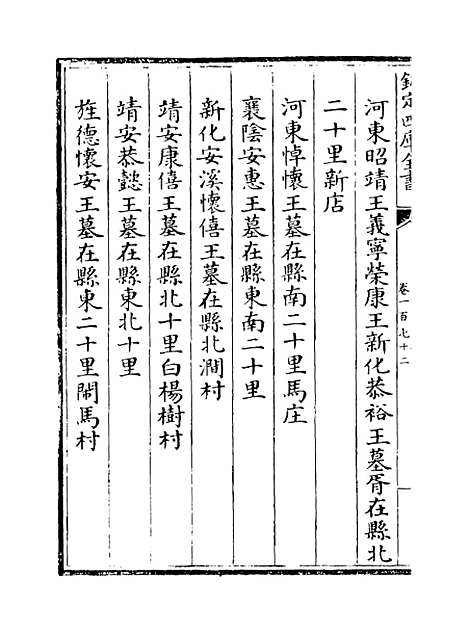 欽定四庫全書
卷一百七十二
河東昭靖王義寧榮康王新化恭裕王墓胥在縣北
二十里新店
河東悼懷王墓在縣南二十里馬庄
襄陰安惠王墓在縣東南二十里
新化安溪懷僖王墓在縣北澗村
靖安康僖王墓在縣北十里白楊樹村
靖安恭懿王墓在縣東北十里
旌德懷安王墓在縣東二十里鬧馬村